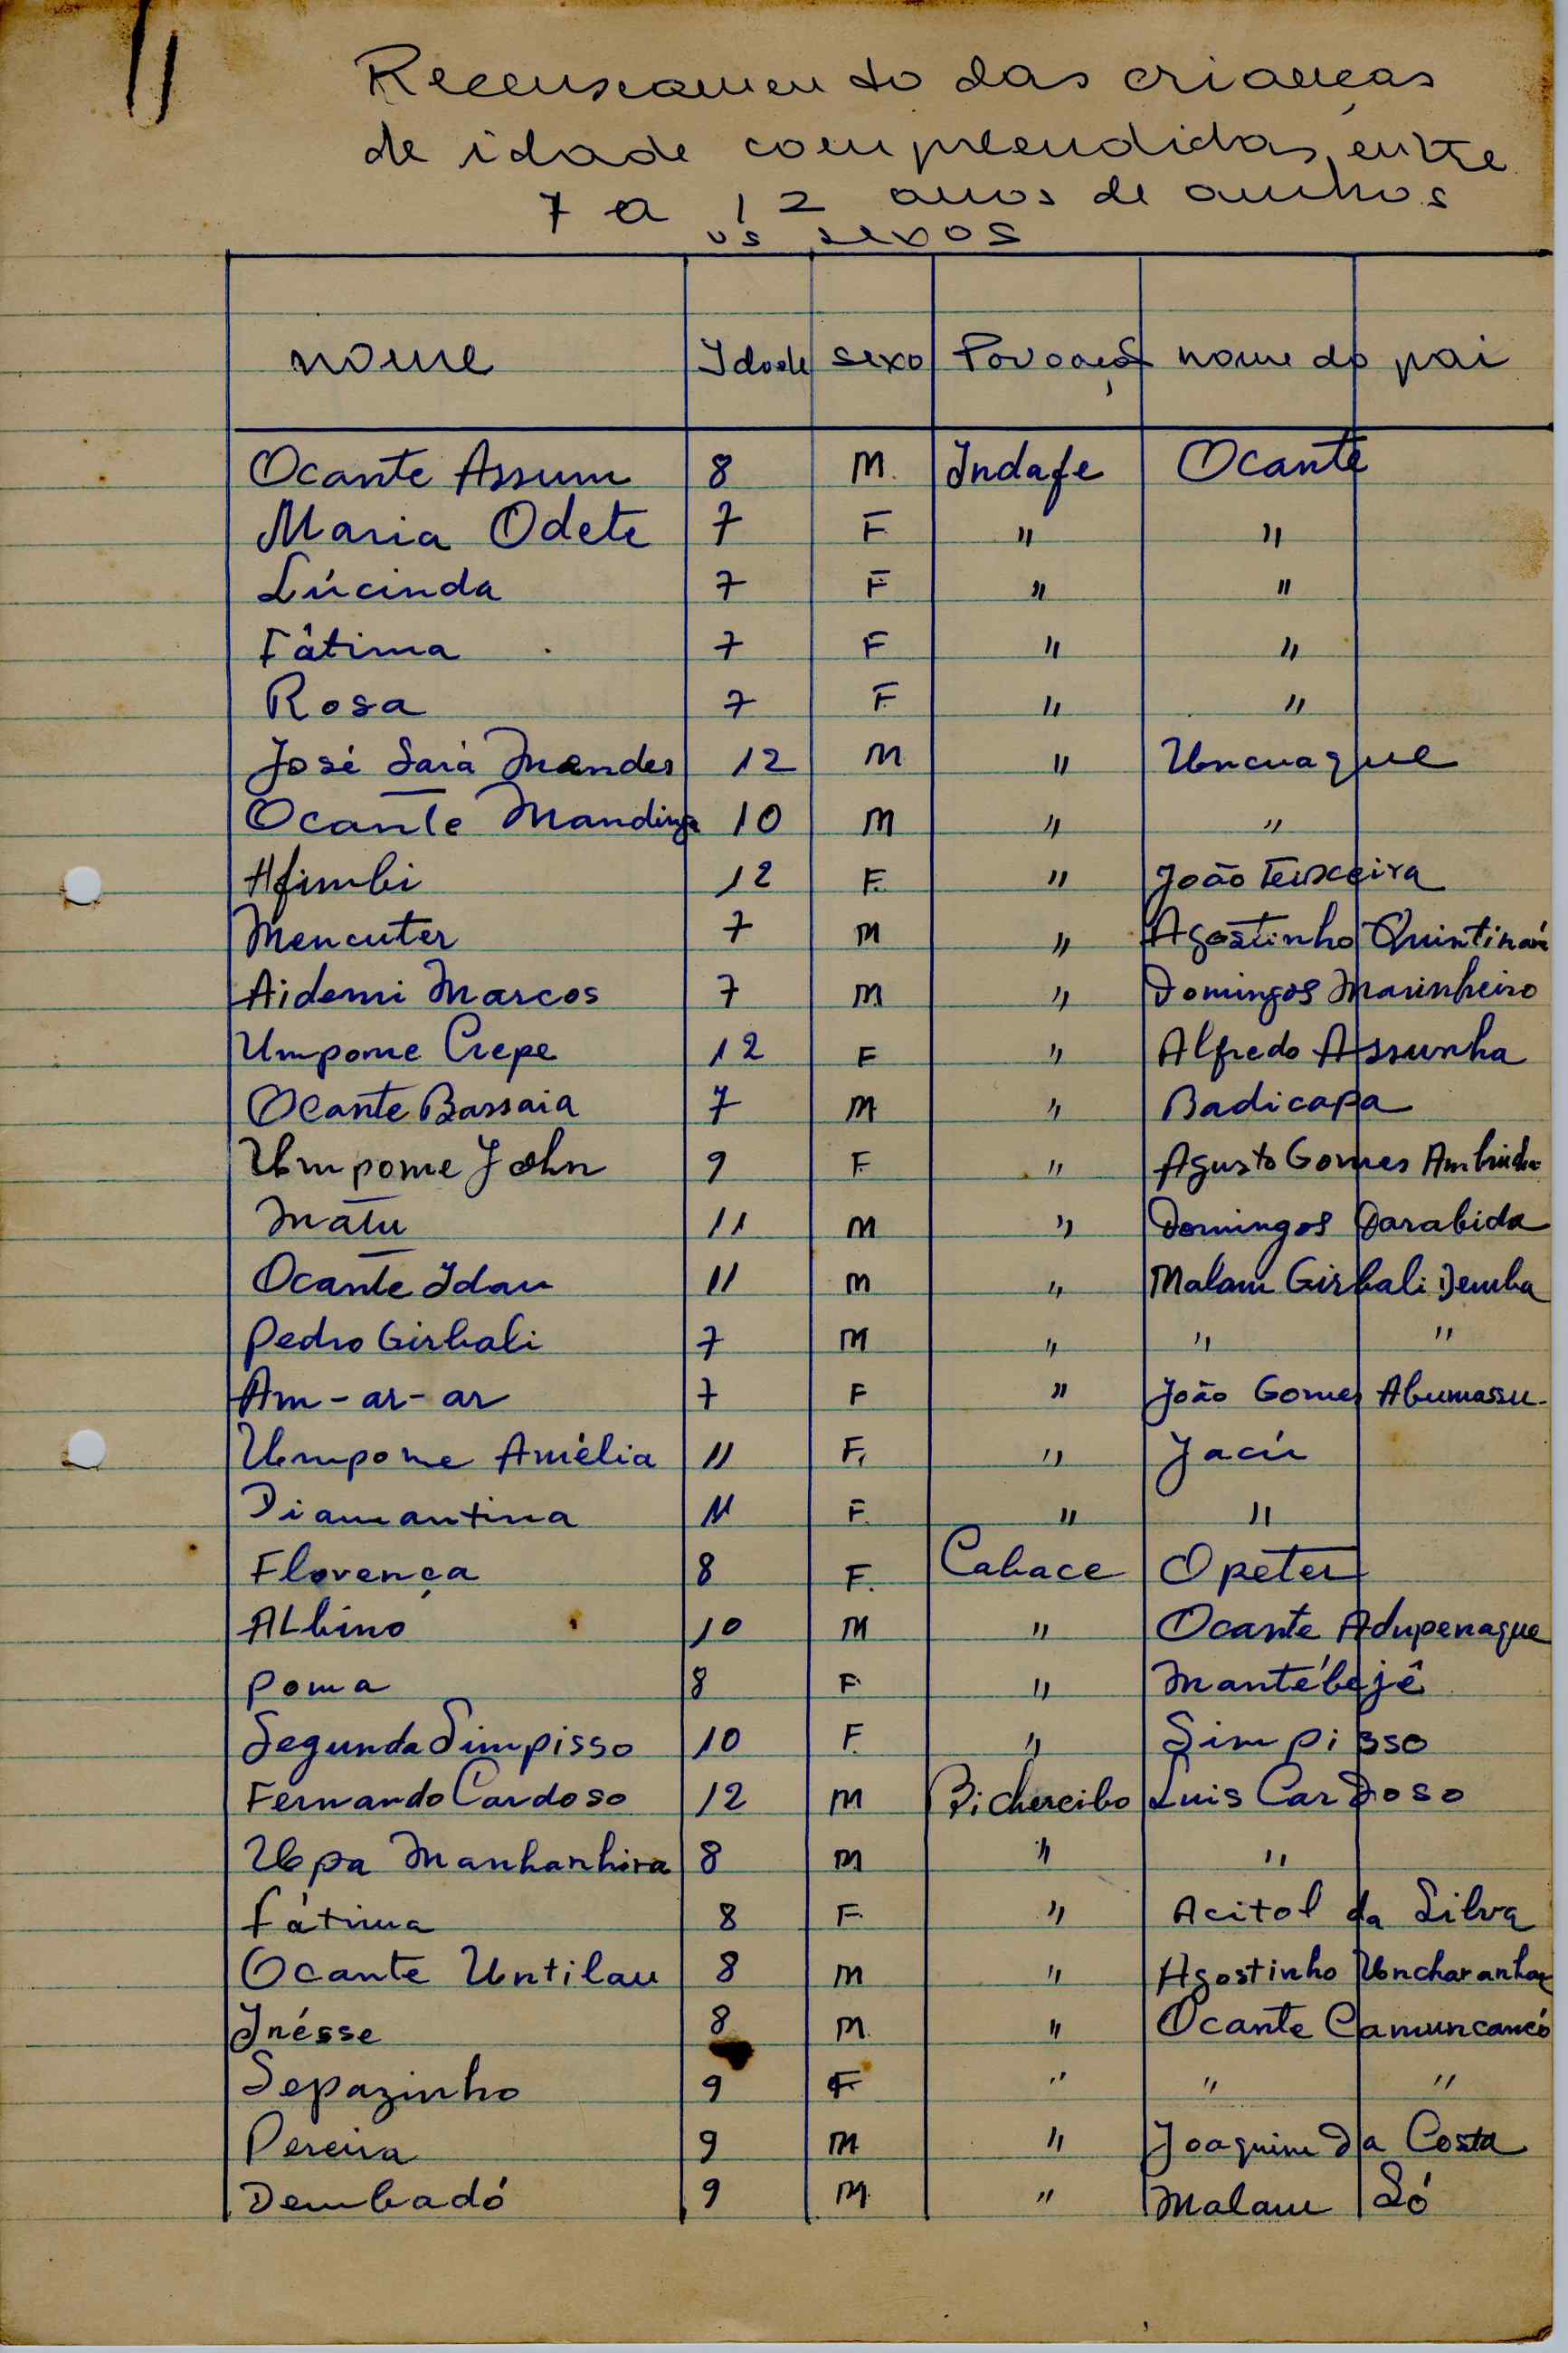 Recenseamento das crianças
de idade compreendidas entre
7 a 12 anos de ambos
os sexos
nome Idade sexo Povoação nome do pai
Ocante Assum 8 M. Indafe Ocante
Maria Odete 7 F. " "
Lúcinda 7 F " "
Fâtima 7 F " "
Rosa 7 F " "
José Saiá Mendes 12 M " Uncuaque
Ocante Mandinga 10 M " "
Afimbi 12 F. " João Teixeira
Mencuter 7 M " Agostinho
Aidemi Marcos 7 M " Domingos Marinheiro
Umpome Crepe 12 F " Alfredo Assunha
Ocante Bassaia 7 M " Badicapa
Umpome John 9 F " Agusto Gomes
Matu 11 M " Domingos Darabida
Ocante Idau 11 M " Malam Girbali Demba
Pedro Girbali 7 M " " "
Am-ar-ar 7 F " João Gomes Abumassu
Umpome Amélia 11 F. " Jacú
Diamantina 11 F. " "
Florença 8 F. Cabace Opeter
Albino 10 M " Ocante Adupenaque
Poma 8 F. " Mantébejê
Segunda Simpisso 10 F. " Simpisso
Fernando Cardoso 12 M Bichercibo Luis Cardoso
Upa Manhanhira 8 M " "
Fátima 8 F. " Acitol da Silva
Ocante Untilau 8 M " Agostinho
Inésse 8 M. " Ocante Camuncancó
Sepazinho 9 F " " "
Pereira 9 M " Joaquim da Costa
Dembadó 9 M. " Malam Só